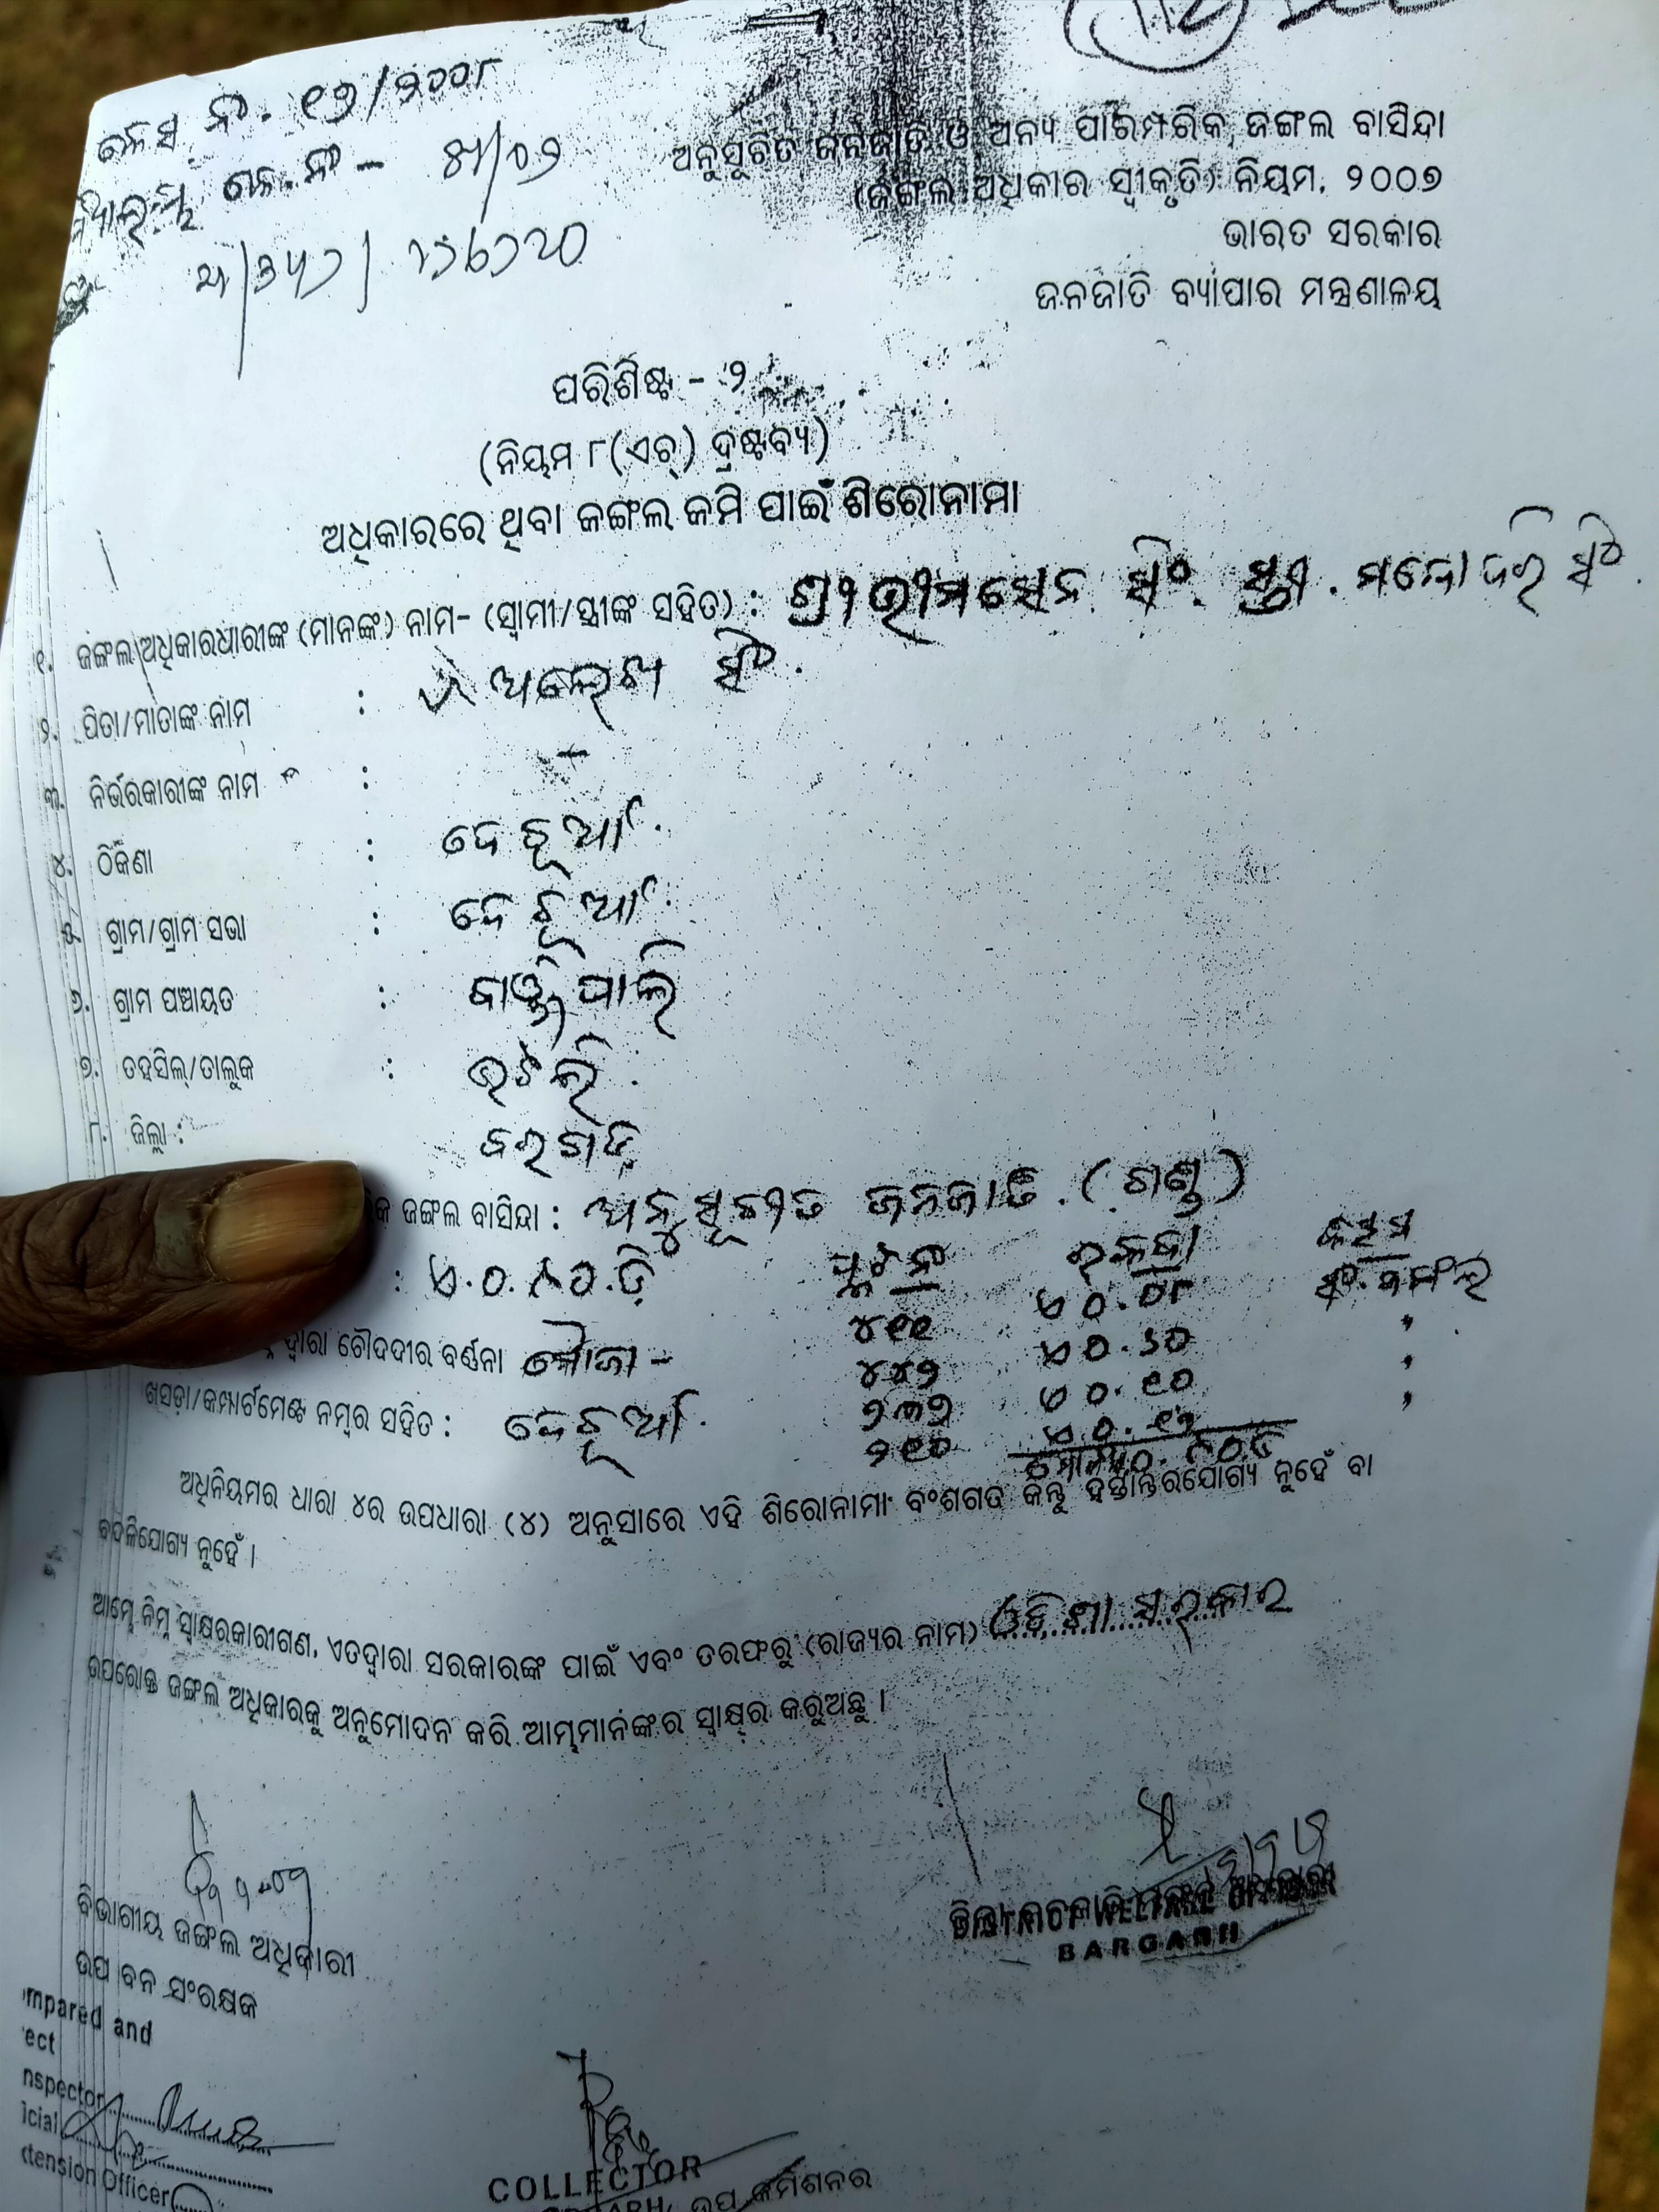 କେସ ନଂ. ୧୨/୨୦୦୮
କେ.ନଂ -
ଅନୁସୂଚିତ ଜନଜାତି ଓ ଅନ୍ୟ ପାରମ୍ପରିକ ଜଙ୍ଗଲ ବାସିନ୍ଦା
(ଜଙ୍ଗଲ ଅଧିକାର ସ୍ୱୀକୃତି) ନିୟମ, ୨୦୦୭
ଭାରତ ସରକାର
ଜନଜାତି ବ୍ୟାପାର ମନ୍ତ୍ରଣାଳୟ
ପରିଶିଷ୍ଟ - ୨
(ନିୟମ ୮(ଏଚ୍) ଦ୍ରଷ୍ଟବ୍ୟ)
ଅଧିକାରରେ ଥିବା ଜଙ୍ଗଲ ଜମି ପାଇଁ ଶିରୋନାମା
୧. ଜଙ୍ଗଲ ଅଧିକାରଧାରୀଙ୍କ (ମାନଙ୍କ) ନାମ- (ସ୍ୱାମୀ/ସ୍ତ୍ରୀଙ୍କ ସହିତ) : ଶ୍ରୀ ଭୀମସେନ ସିଂ. ସ୍ତ୍ରୀ.
୨. ପିତା/ମାତାଙ୍କ ନାମ : ଅଲେଖ ସିଂ.
୩. ନିର୍ଭରକାରୀଙ୍କ ନାମ : -
୪. ଠିକଣା : ଦେଚୂଆଁ.
୫. ଗ୍ରାମ/ଗ୍ରାମ ସଭା : ଦେଚୂଆଁ.
୬. ଗ୍ରାମ ପଞ୍ଚାୟତ :
୭. ତହସିଲ୍/ତାଲୁକ : ଭଟଲି.
୮. ଜିଲ୍ଲା : ବରଗଡ଼
ଜଙ୍ଗଲ ବାସିନ୍ଦା : ଅନୁସୂଚୀତ ଜନଜାତି. (ଗଣ୍ଡ)
: ଏ.୦.୮୦.ଡି ପ୍ଲଟ ନଂ ରକବା କିସମ
୪୧୧ ଏ ୦.୦୮
ଦ୍ୱାରା ଚୌଦଦୀର ବର୍ଣ୍ଣନା ମୌଜା - ୪୪୨ "
୨୩୨ ଏ ୦.୧୦ "
ଖସଡ଼ା/କମ୍ପାର୍ଟମେଣ୍ଟ ନମ୍ବର ସହିତ : ଦେଚୂଆଁ. ୨୧୦ "
ଅଧିନିୟମର ଧାରା ୪ର ଉପଧାରା (୪) ଅନୁସାରେ ଏହି ଶିରୋନାମା ବଂଶଗତ କିନ୍ତୁ ହସ୍ତାନ୍ତରଯୋଗ୍ୟ ନୁହେଁ ବା
ବଦଳିଯୋଗ୍ୟ ନୁହେଁ ।
ଆମ୍ଭେ ନିମ୍ନ ସ୍ୱାକ୍ଷରକାରୀଗଣ, ଏତଦ୍ୱାରା ସରକାରଙ୍କ ପାଇଁ ଏବଂ ତରଫରୁ (ରାଜ୍ୟର ନାମ) ଓଡିଶା ସରକାର
ଉପରୋକ୍ତ ଜଙ୍ଗଲ ଅଧିକାରକୁ ଅନୁମୋଦନ କରି ଆମ୍ଭମାନଙ୍କର ସ୍ୱାକ୍ଷର କରୁଅଛୁ ।
ବିଭାଗୀୟ ଜଙ୍ଗଲ ଅଧିକାରୀ
ଉପ ବନ ସଂରକ୍ଷକ
DISTRICT WELFARE OFFICER
BARGARH
mpared and
ect
nspector
icial
tension Officer
COLLECTOR
ଉପ କମିଶନର